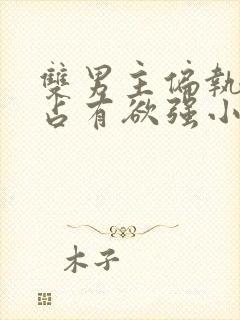 雙男主偏執
占有欲强小
木子